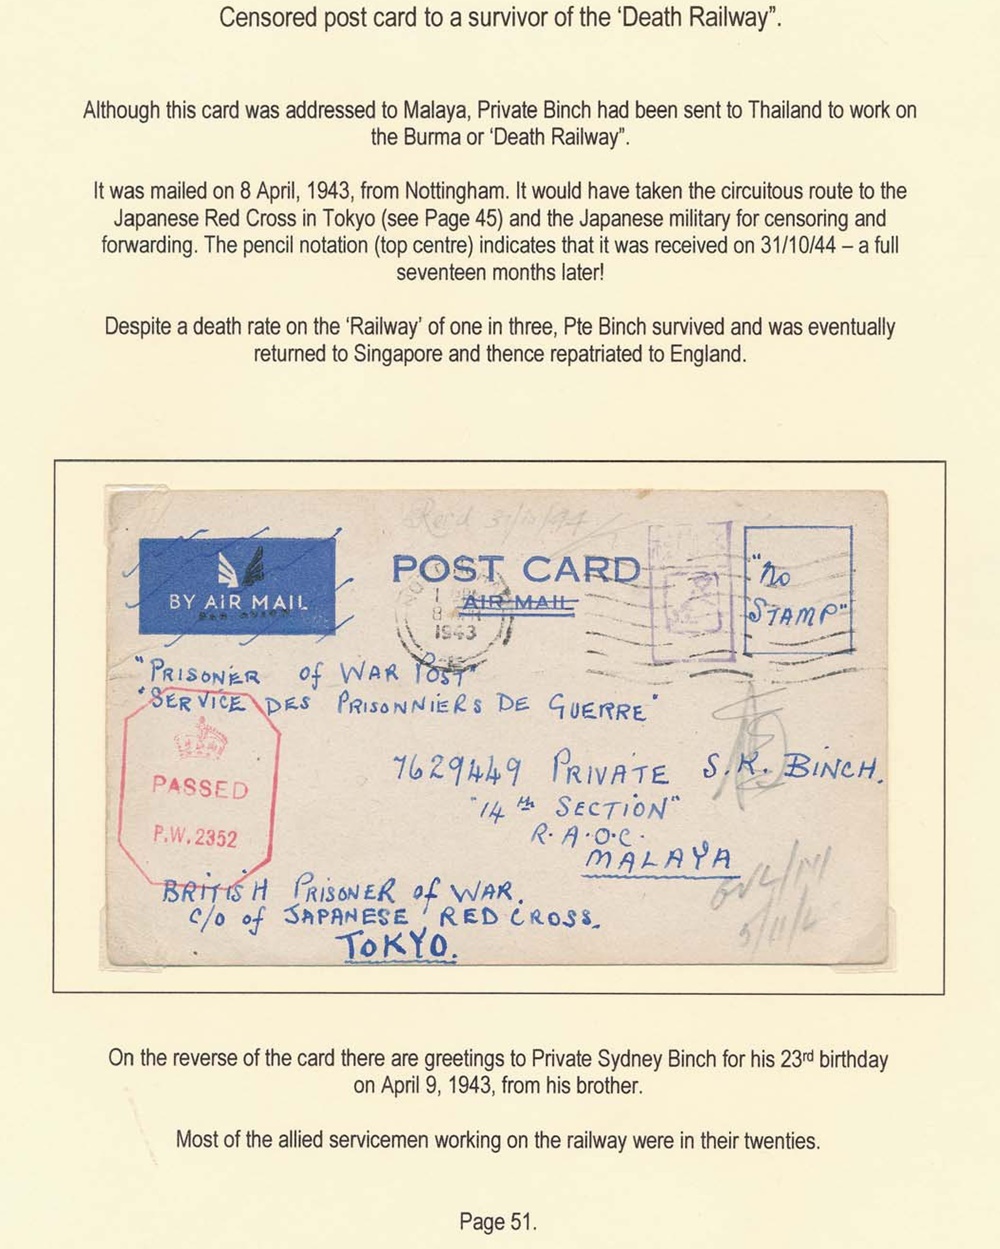 Censored post card to a survivor of the ‘Death Railway”.
Although this card was addressed to Malaya, Private Binch had been sent to Thailand to work on
the Burma or ‘Death Railway”.
It was mailed on 8 April, 1943, from Nottingham. It would have taken the circuitous route to the
Japanese Red Cross in Tokyo (see Page 45) and the Japanese military for censoring and
forwarding. The pencil notation (top centre) indicates that it was received on 31/10/44 – a full
seventeen months later!
Despite a death rate on the ‘Railway’ of one in three, Pte Binch survived and was eventually
returned to Singapore and thence repatriated to England.
Recd 31/10/44
POST CARD
AIR MAIL
BY AIR MAIL
1943
"No
STAMP"
"PRISONER of WAR POST"
"SERVICE DES PRISONNIERS DE GUERRE"
PASSED
P.W.2352
7629449 PRIVATE S.K. BINCH.
"14th SECTION"
R.A.O.C.
MALAYA
BRITISH PRISONER of WAR.
C/O of JAPANESE RED CROSS.
TOKYO.
On the reverse of the card there are greetings to Private Sydney Binch for his 23rd birthday
on April 9, 1943, from his brother.
Most of the allied servicemen working on the railway were in their twenties.
Page 51.